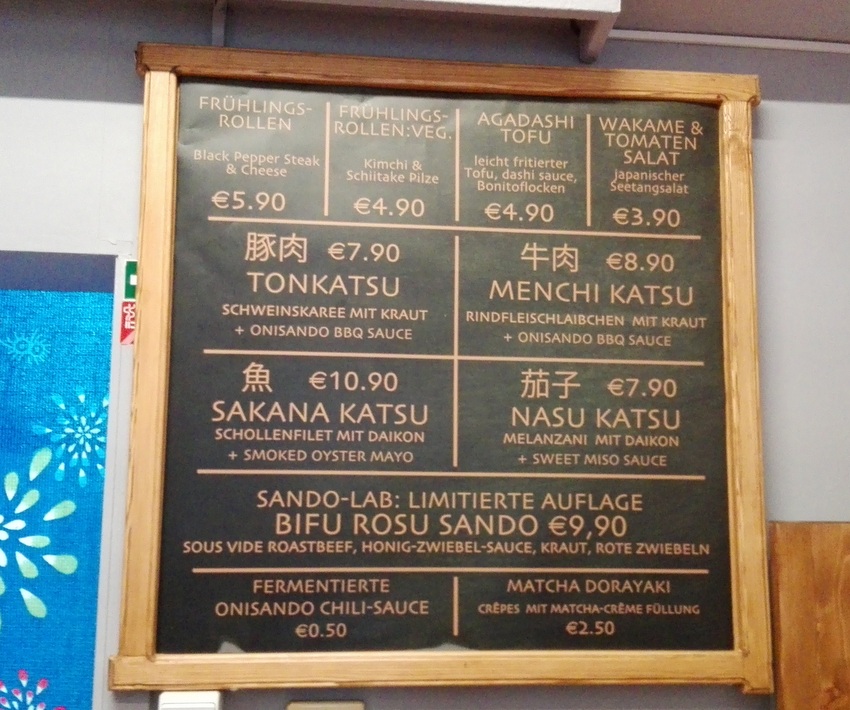 FRÜHLINGS-
ROLLEN
Black Pepper Steak
& Cheese
€5.90
FRÜHLINGS-
ROLLEN:VEG.
Kimchi &
Schiitake Pilze
€4.90
AGADASHI
TOFU
leicht fritierter
Tofu, dashi sauce,
Bonitoflocken
€4.90
WAKAME &
TOMATEN
SALAT
Japanischer
Seetangsalat
€3.90
豚肉 €7.90
TONKATSU
SCHWEINSKAREE MIT KRAUT
+ ONISANDO BBQ SAUCE
牛肉 €8.90
MENCHI KATSU
RINDFLEISCHLAIBCHEN MIT KRAUT
+ ONISANDO BBQ SAUCE
魚 €10.90
SAKANA KATSU
SCHOLLENFILET MIT DAIKON
+ SMOKED OYSTER MAYO
茄子 €7.90
NASU KATSU
MELANZANI MIT DAIKON
+ SWEET MISO SAUCE
SANDO-LAB: LIMITIERTE AUFLAGE
BIFU ROSU SANDO €9,90
SOUS VIDE ROASTBEEF, HONIG-ZWIEBEL-SAUCE, KRAUT, ROTE ZWIEBELN
FERMENTIERTE
ONISANDO CHILI-SAUCE
€0.50
MATCHA DORAYAKI
CRÊPES MIT MATCHA-CRÈME FÜLLUNG
€2.50